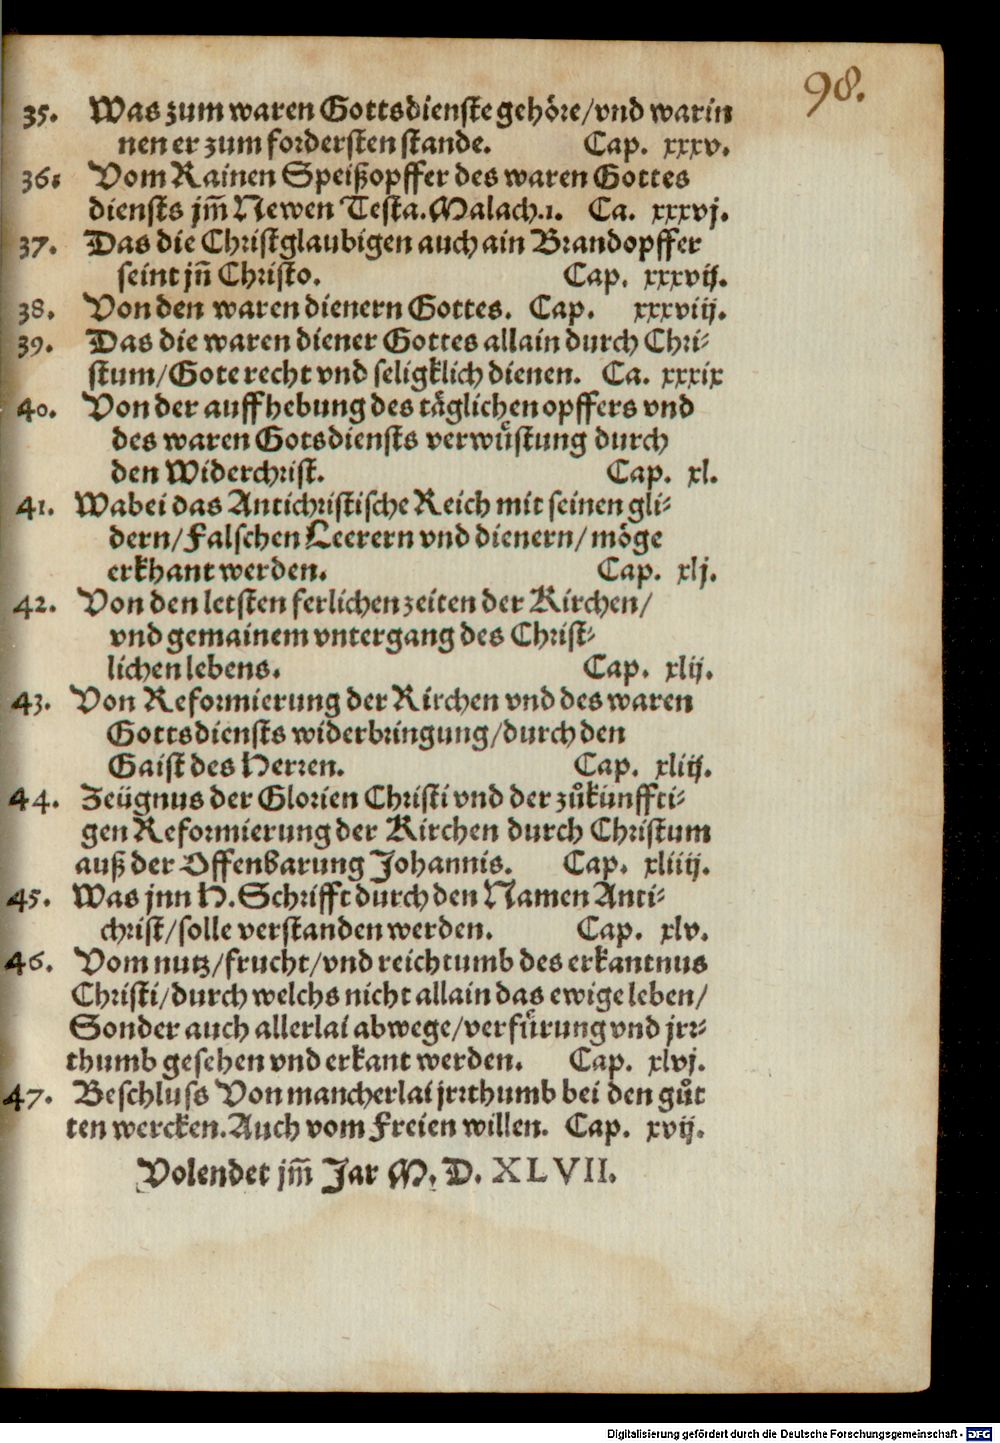 98.
35. Was zum waren Gottsdienste gehöre/vnd warin
nen er zum fordersten stande. Cap. xxxv.
36. Vom Rainen Speißopffer des waren Gottes
diensts jm̃ Newen Testa. Malach.1. Ca. xxxvj.
37. Das die Christglaubigen auch ain Brandopffer
seint jñ Christo. Cap. xxxvij.
38. Von den waren dienern Gottes. Cap. xxxviij.
39. Das die waren diener Gottes allain durch Chri-
stum/Gote recht vnd seligklich dienen. Ca. xxxix
40. Von der auffhebung des täglichen opffers vnd
des waren Gotsdiensts verwüstung durch
den Widerchrist. Cap. xl.
41. Wabei das Antichristische Reich mit seinen gli-
dern/Falschen Leerern vnd dienern/möge
erkhant werden. Cap. xlj.
42. Von den letsten ferlichen zeiten der Kirchen/
vnd gemainem vntergang des Christ-
lichen lebens. Cap. xlij.
43. Von Reformierung der Kirchen vnd des waren
Gottsdiensts widerbringung/durch den
Gaist des Herren. Cap. xliij.
44. Zeügnus der Glorien Christi vnd der zůkünffti-
gen Reformierung der Kirchen durch Christum
auß der Offenbarung Johannis. Cap. xliiij.
45. Was jnn H. Schrifft durch den Namen Anti-
christ/solle verstanden werden. Cap. xlv.
46. Vom nutz/frucht/vnd reichtumb des erkantnus
Christi/durch welchs nicht allain das ewige leben/
Sonder auch allerlai abwege/verfürung vnd jrr-
thumb gesehen vnd erkant werden. Cap. xlvj.
47. Beschluss Von mancherlai jrrthumb bei den gůt
ten wercken. Auch vom Freien willen. Cap. xvij.
Volendet jm̃ Jar M. D. XLVII.
Digitalisierung gefördert durch die Deutsche Forschungsgemeinschaft - DFG